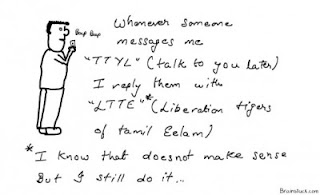 Beep Beep
Whenever someone
messages me
"TTYL" (talk to you later)
I reply them with
"LTTE"* (Liberation tigers
of tamil Eelam)
*I know that doesnot make sense
But I still do it...
Brainstuck.com